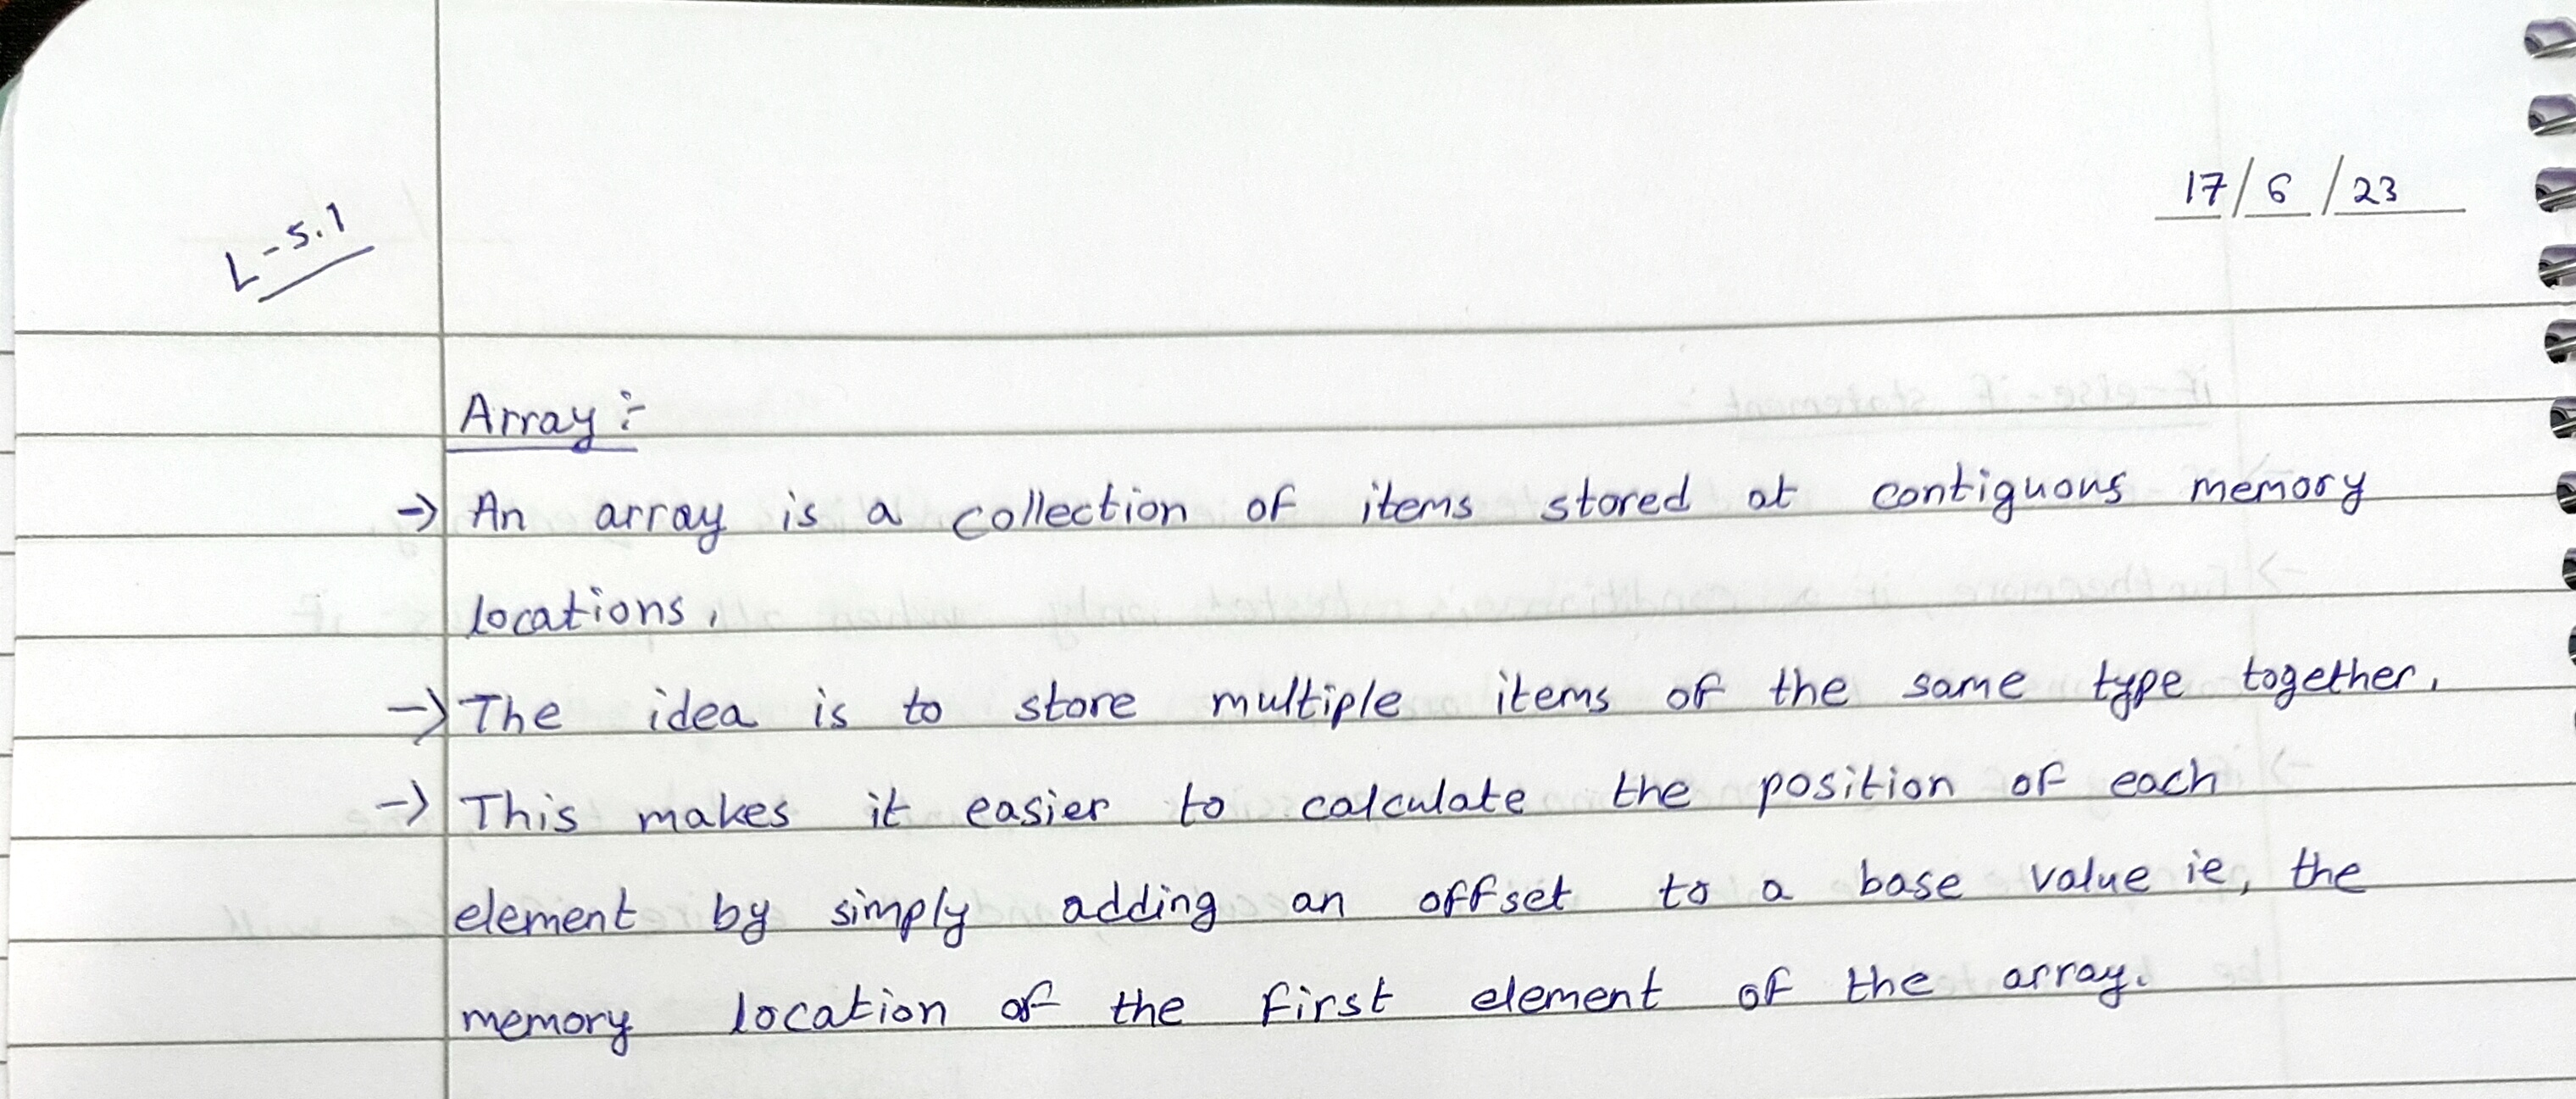 17/6/23
L-5.1
Array :-
→ An array is a collection of items stored at contiguous memory
locations.
→ The idea is to store multiple items of the same type together.
→ This makes it easier to calculate the position of each
element by simply adding an offset to a base value ie, the
memory location of the first element of the array.